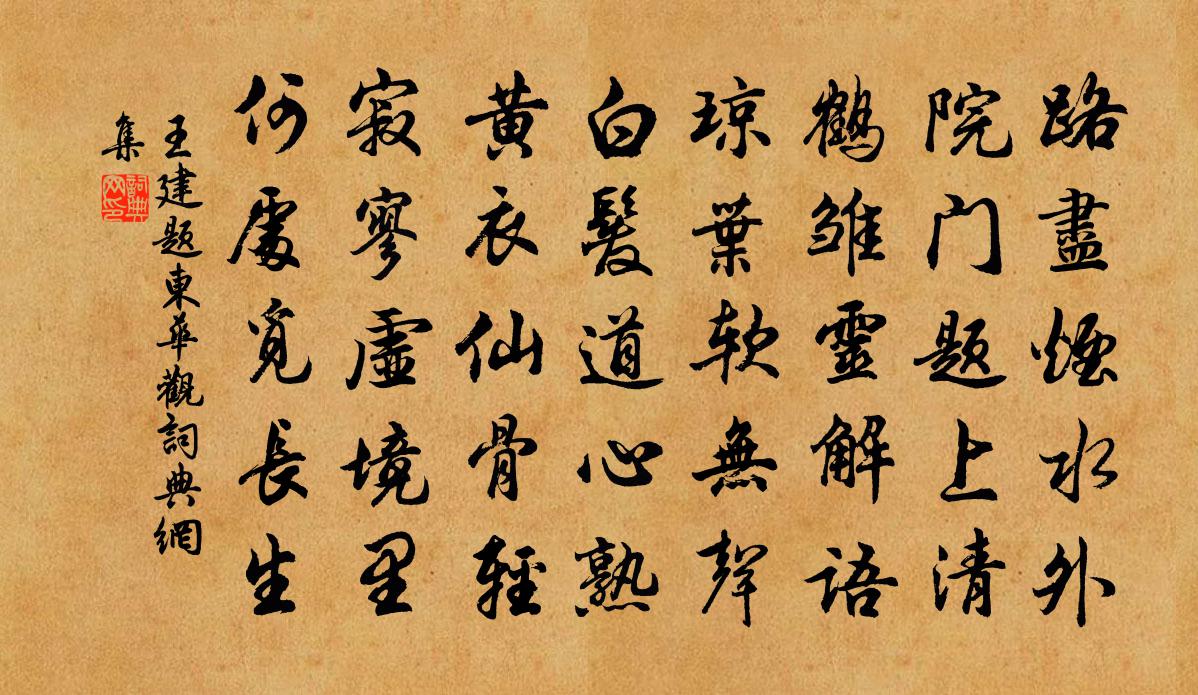 路盡煙水外
院门題上清
鶴雏靈解語
琼葉软無聲
白髮道心熟
黄衣仙骨輕
寂寥虛境里
何處覓長生
王建題東華觀詞典網
集
詞典
网印